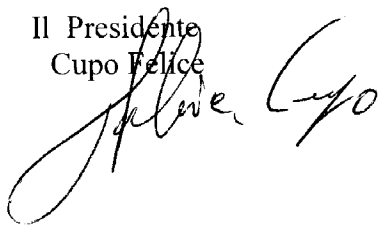 Il Presidente
Cupo Felice
Felice Cupo